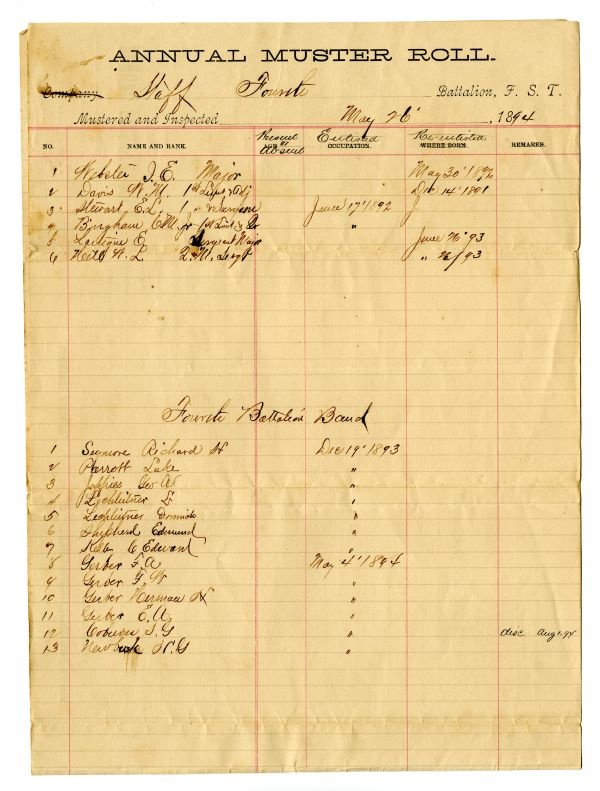 ANNUAL MUSTER ROLL.
Company Staff Fourth Battalion, F. S. T.
Mustered and Inspected May 26' , 1894
Present or Absent Enlisted Re-enlisted
NO. NAME AND RANK. OCCUPATION. WHERE BORN. REMARKS.
1 Webster J. E. Major May 30' 1892
2 Davis W. M. 1st Lieut & Adj Dec 14' 1891
3 Stewart E. L. 1 " & Surgeon June 17' 1892
4 Bingham C. M. Jr 1st Lieut & "
5 E. Sergeant Major June 26' 93
6 W. L. Q. M. Sergt " 26/93
Fourth Battalion Band
1 Seymore Richard H Dec 19' 1893
2 Parrott Luke "
3 Jeffries Geo W "
4 Lechleitner L "
5 Lechleitner Dominick "
6 Shepherd Edmund "
7 C Edward "
8 Gerber F. A May 4' 1894
9 Gerber F. W "
10 Gerber Herman N "
11 Gerber E. A. "
12 Coburn S. G " disc. Aug 1-94
13 H. G "